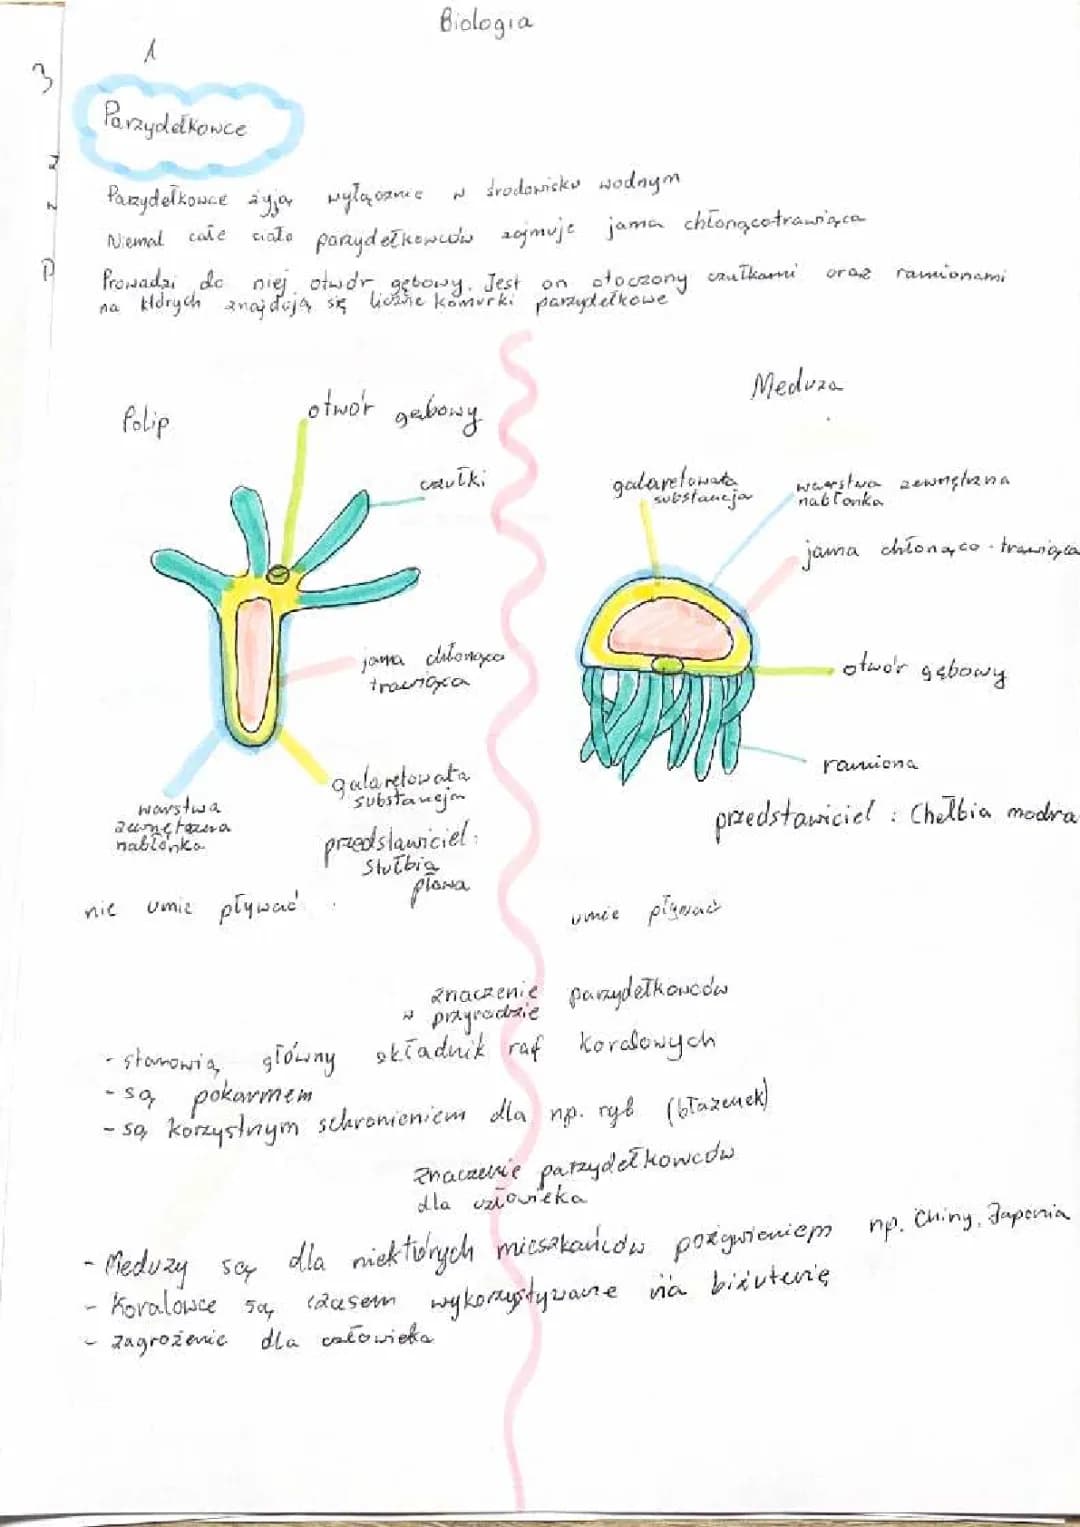 Biologia
1
Parzydełkowce
Parzydełkowce żyją wyłącznie w środowisku wodnym
Niemal całe ciało parzydełkowców zajmuje jama chłonącotrawiąca
Prowadzi do niej otwór gębowy. Jest on otoczony czułkami oraz ramionami
na których znajdują się liczne komurki parzydełkowe
Polip
otwór gębowy
czułki
jama chłonąco
trawiąca
galaretowata
substancja
warstwa
zewnętrzna
nabłonka
przedstawiciel:
Stułbia
płowa
nie umie pływać
Meduza
galaretowata
substancja
warstwa zewnętrzna
nabłonka
jama chłonąco-trawiąca
otwór gębowy
ramiona
przedstawiciel: Chełbia modra
umie pływać
znaczenie parzydełkowców
w przyrodzie
- stanowią główny składnik raf koralowych
- są pokarmem
- są korzystnym schronieniem dla np. ryb (błazenek)
Znaczenie parzydełkowców
dla człowieka
- Meduzy są dla niektórych mieszkańców pożywieniem np. Chiny, Japonia
- Koralowce są czasem wykorzystywane na biżuterię
- zagrożenie dla człowieka